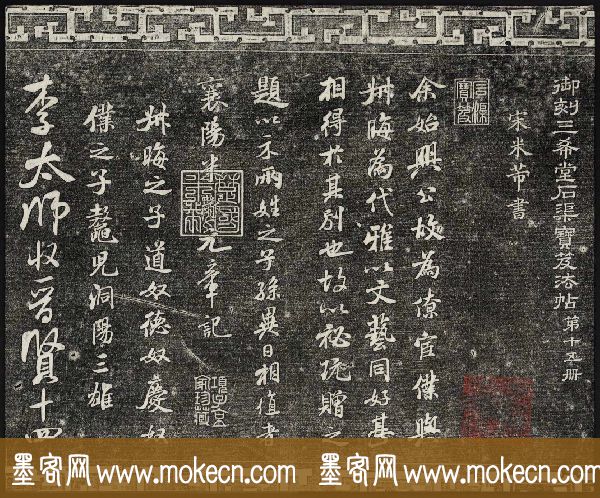 御刻三希堂石渠寶笈法帖 第十五冊
宋米芾書
余始興公故為僚宦僕與
叔晦為代雅以文藝同好甚
相得於其別也故以秘玩贈之
題以示兩姓之子孫異日相值者
襄陽米黻元章記
叔晦之子道奴德奴慶奴
僕之子鼇兒洞陽三雄
李太師收晉賢十四
墨客网 www.mokecn.com 墨客网 www.mokecn.com